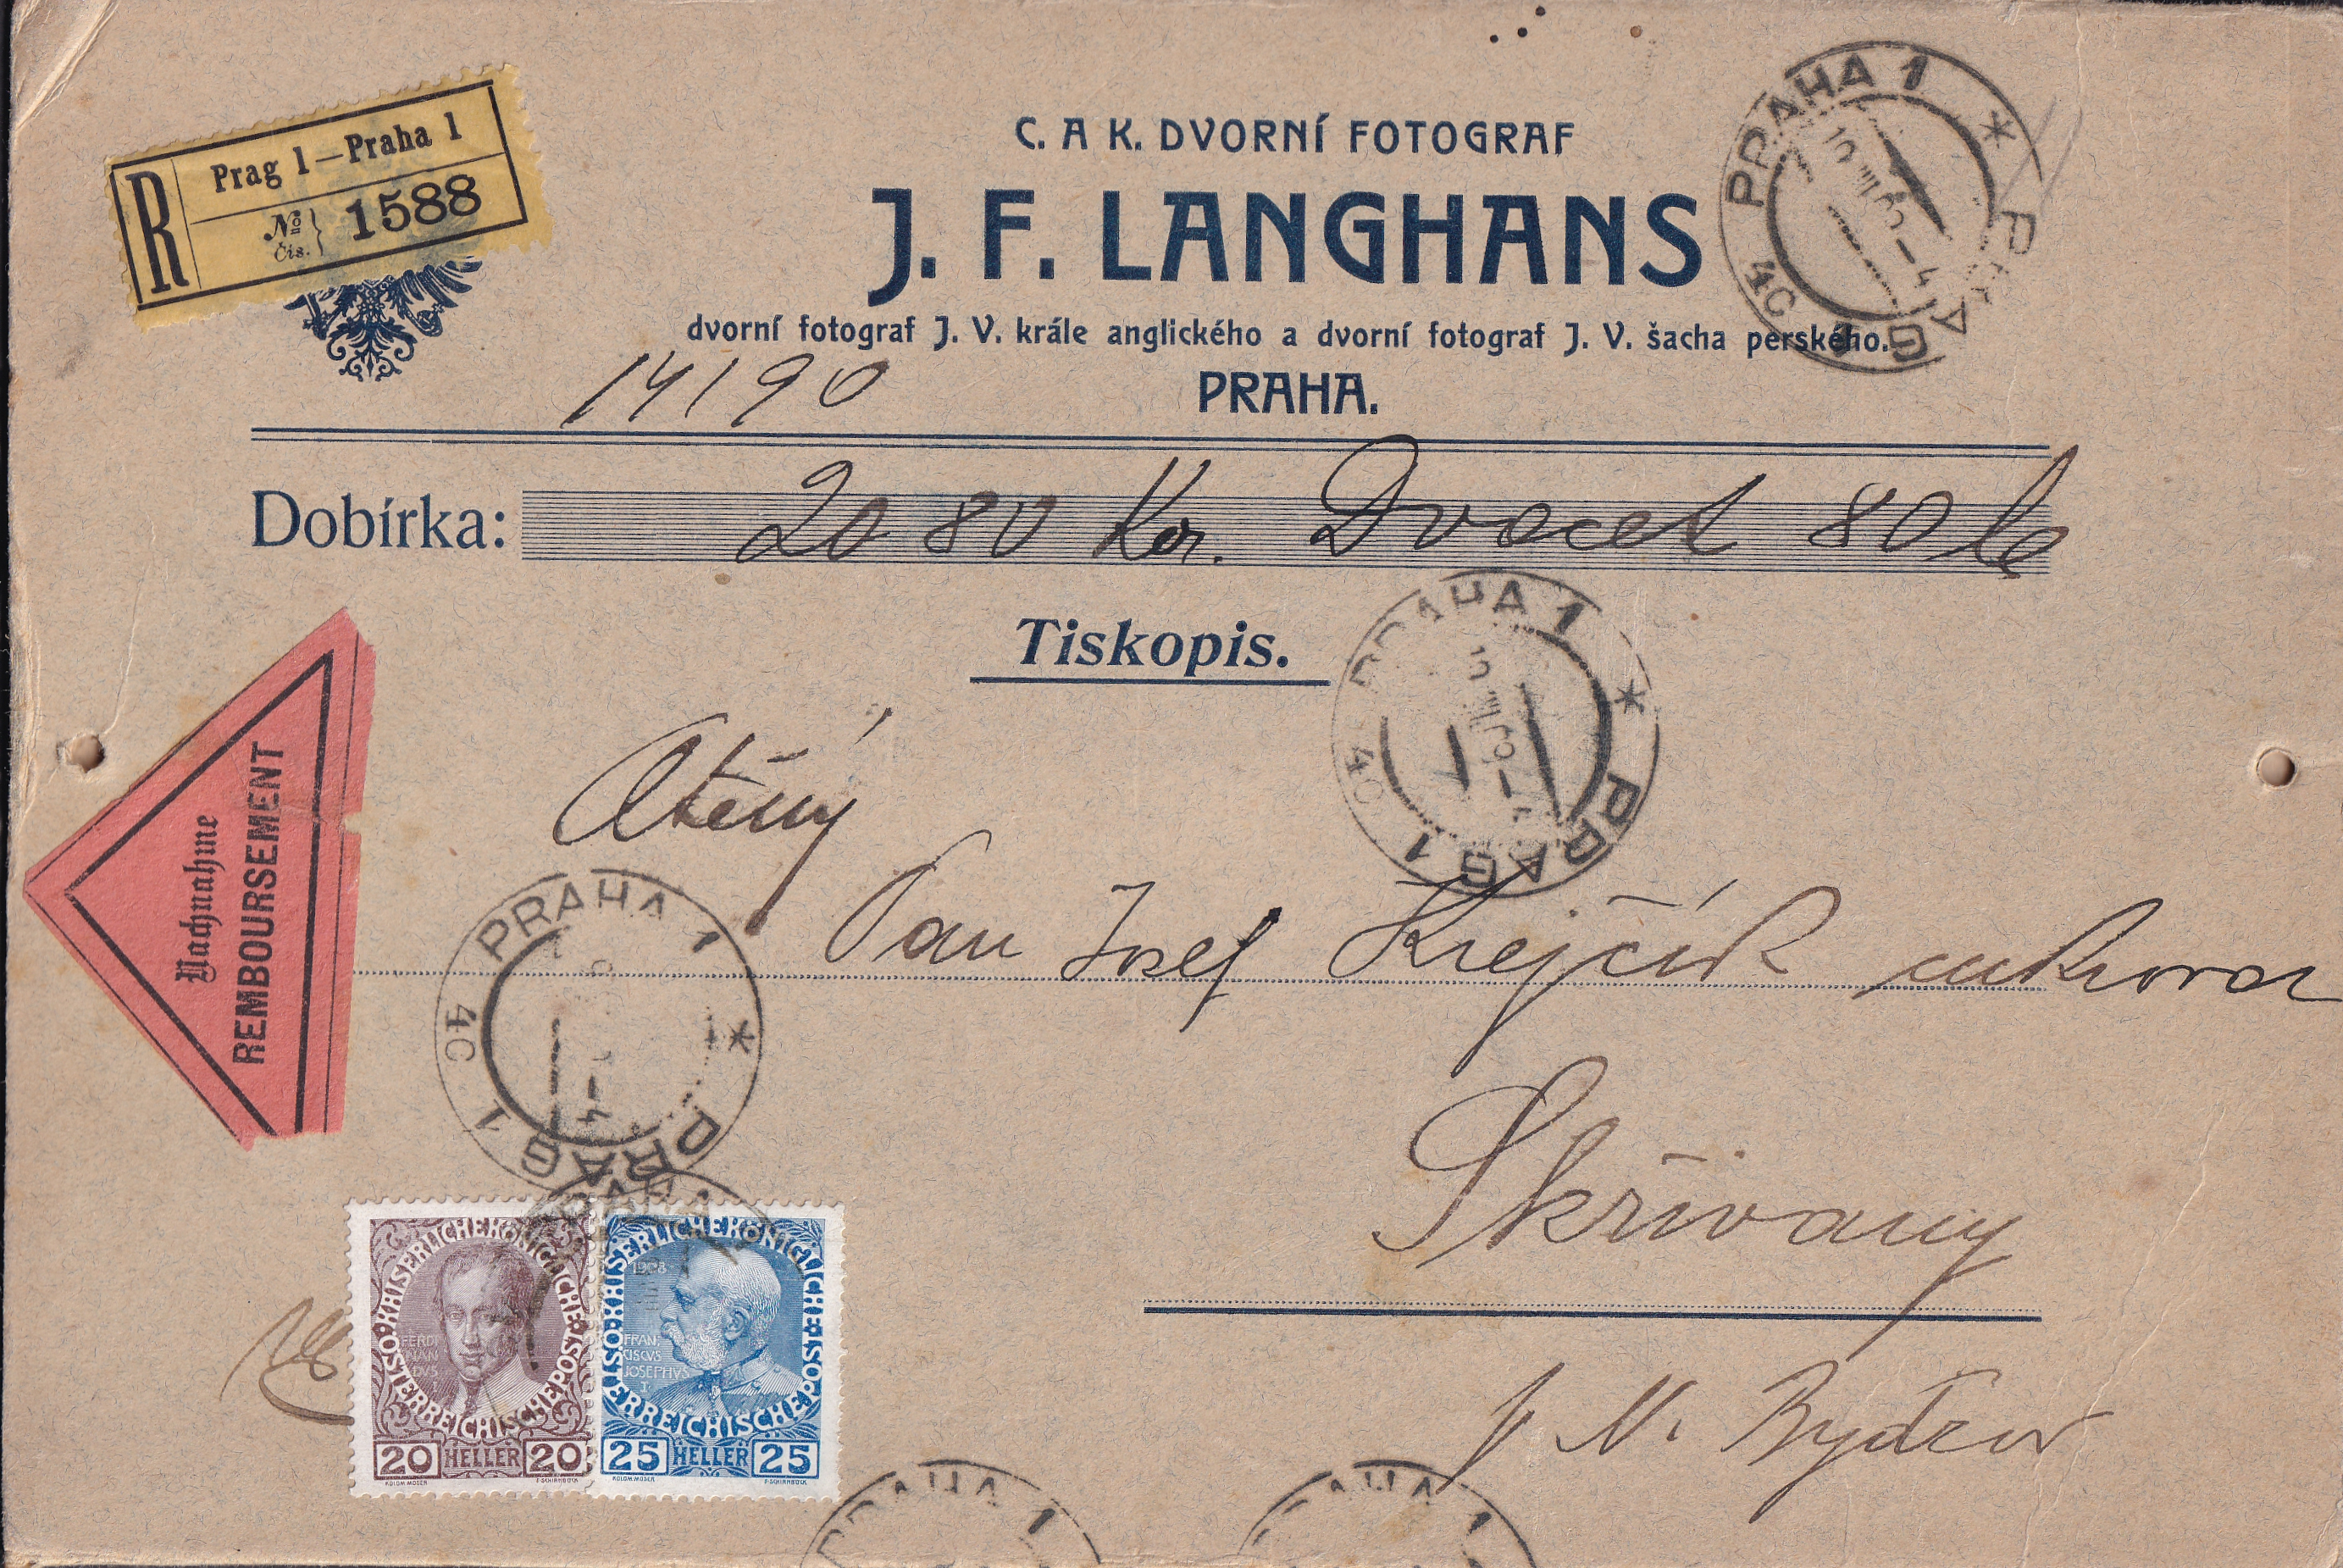 R
Prag 1—Praha 1
№ Čís. } 1588
C. A K. DVORNÍ FOTOGRAF
J. F. LANGHANS
dvorní fotograf J. V. krále anglického a dvorní fotograf J. V. šacha perského.
PRAHA.
14190
Dobírka: 20 80 Kor. Dvacet 80
Tiskopis.
PRAHA 1 * PRAG 1 4C
PRAHA 1 * PRAG 1 4C
Nachnahme
REMBOURSEMENT
Pan Josef Krejčík
PRAHA 1 * PRAG 1 4C
Skřivany
N. Bydžov
KAISERLICHE KÖNIGLICHE ÖSTERREICHISCHE POST
FERDI
NAN
DVS
20 HELLER 20
KOLOM. MOSER F. SCHIRNBÖCK
KAISERLICHE KÖNIGLICHE ÖSTERREICHISCHE POST
1908
FRAN
CISCVS
JOSEPHVS
I
25 HELLER 25
KOLOM. MOSER F. SCHIRNBÖCK
PRAHA 1
PRAHA 1